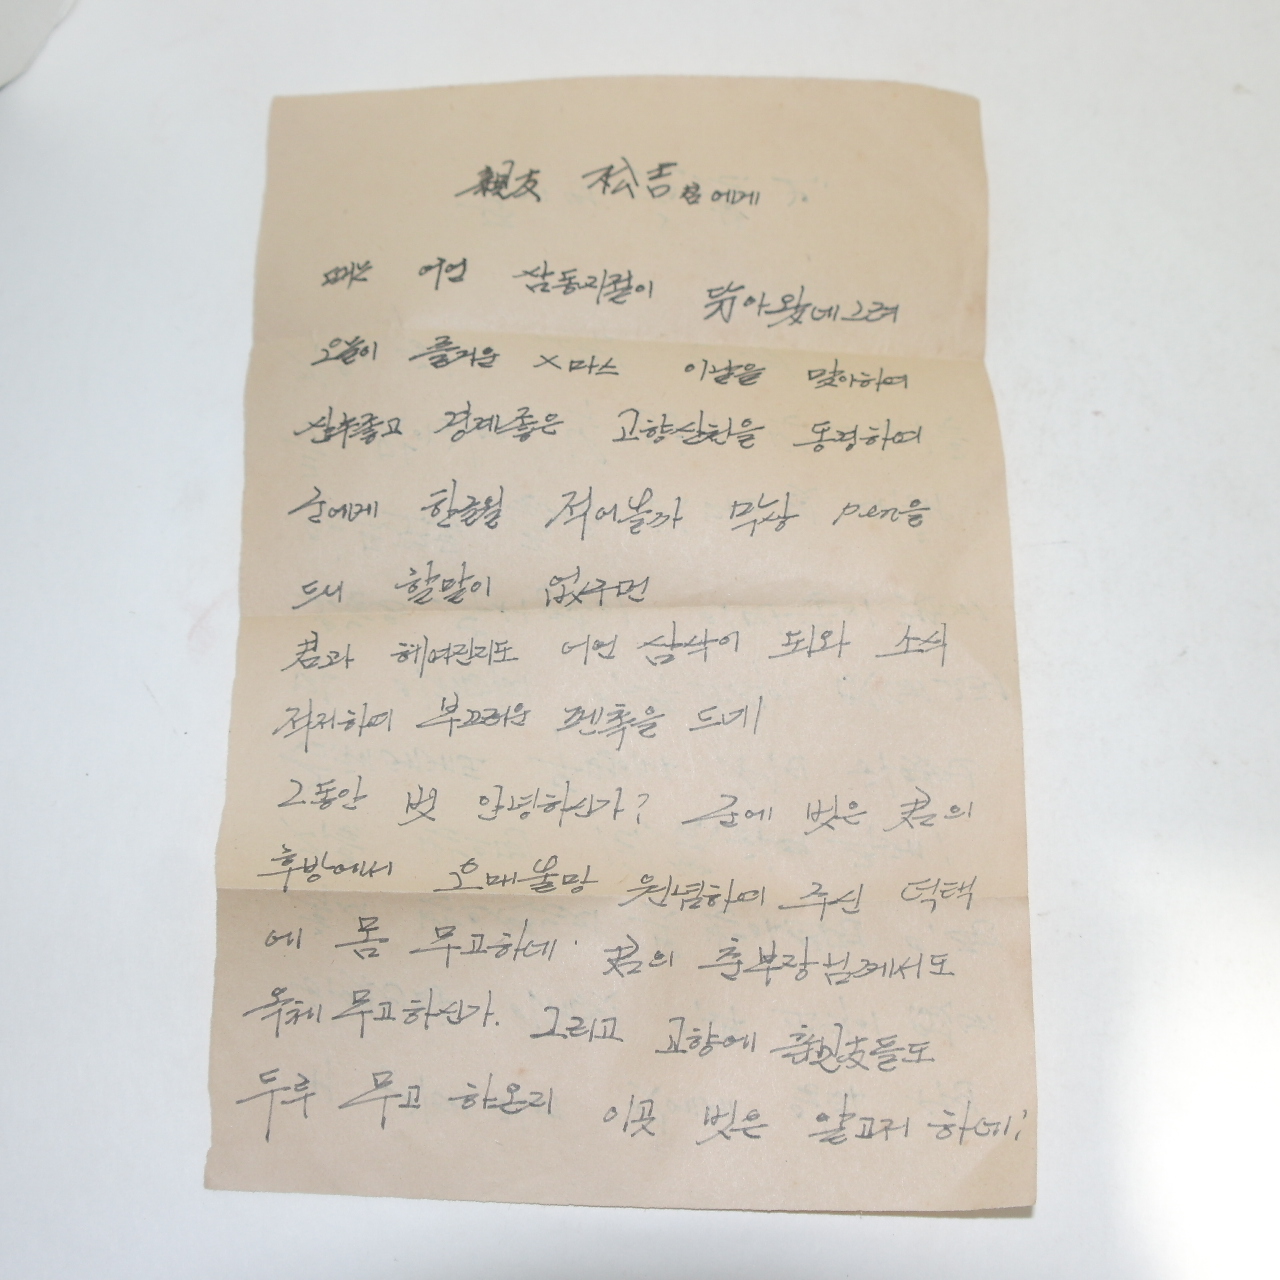 親友 松吉君에게
때는 어언 삼동지절이 닥아왔네그려
오늘이 즐거운 X마스 이날을 맞아하여
산수좋고 경계좋은 고향산천을 동경하며
군에게 한글월 적어볼까 막상 pen을
드니 할말이 없구먼
君과 헤여린지도 어언 삼삭이 되와 소식
적저하며 부끄러운 펜촉을 드네
그동안 벗 안녕하신가? 군에 벗은 君의
후방에서 오매불망 원념하며 주신 덕택
에 몸 무고하네. 君의 춘부장님께서도
옥체 무고하신가. 그리고 고향에 親友들도
두루 무고 하온지 이곳 벗은 알고저 하네?